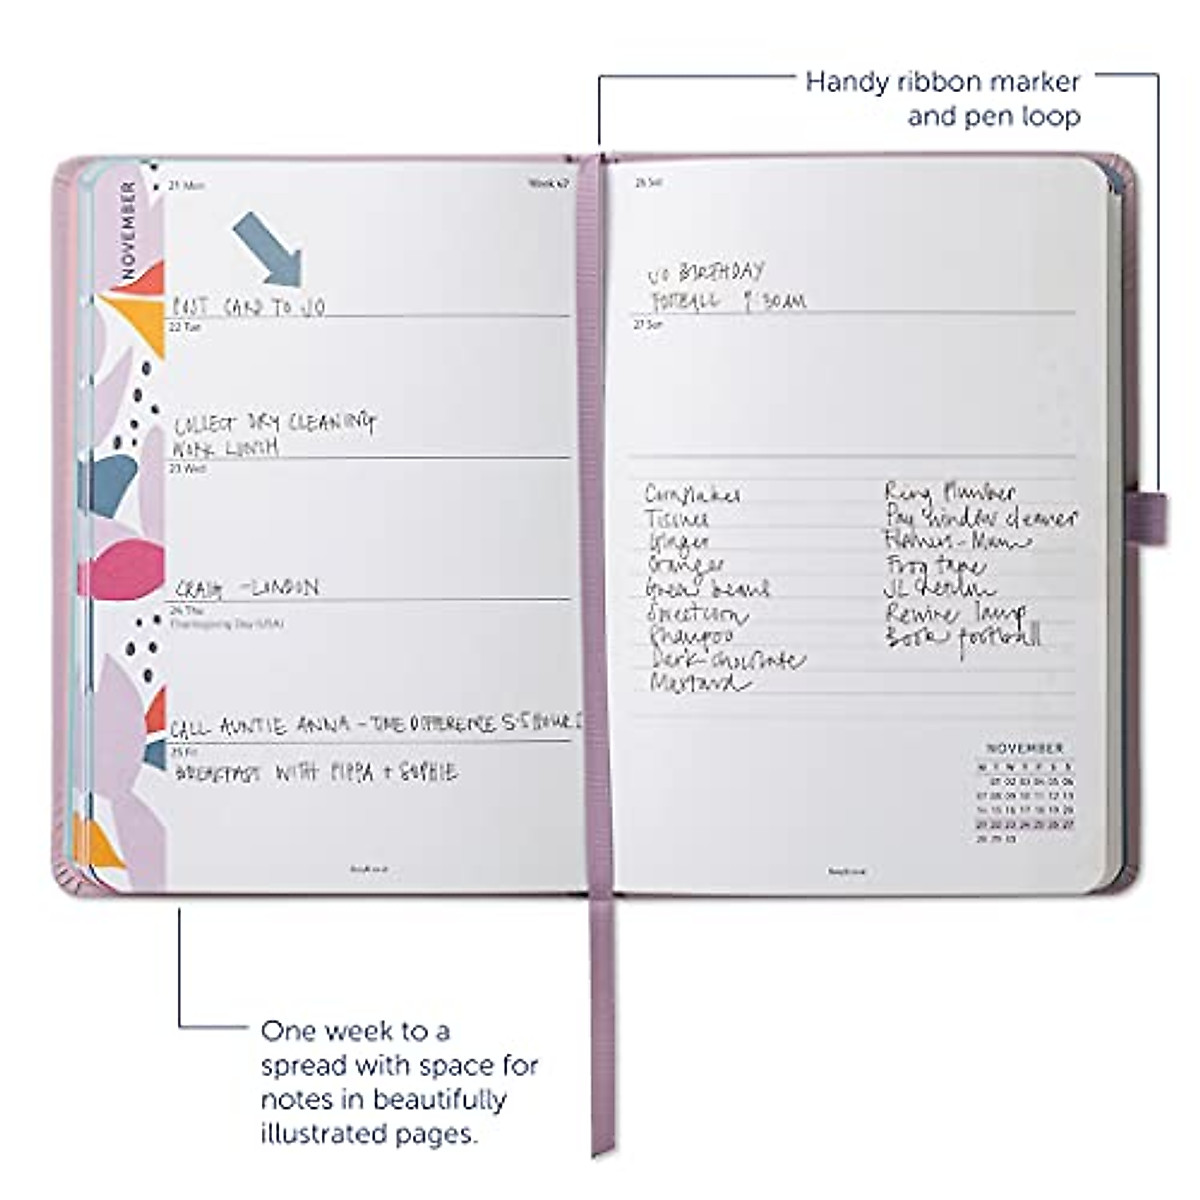 Handy ribbon marker
and pen loop
NOVEMBER
21 Mon
Week 47
POST CARD TO JO
22 Tue
COLLECT DRY CLEANING
WORK LUNCH
23 Wed
CRAIG - LONDON
24 Thu
Thanksgiving Day (USA)
CALL AUNTIE ANNA - TIME DIFFERENCE 5-5 HOURS
25 Fri
BREAKFAST WITH PIPPA + SOPHIE
26 Sat
JO BIRTHDAY
FOOTBALL 9:30AM
27 Sun
Cornflakes
Tissues
Ginger
Oranges
Green beans
Sweetcorn
Shampoo
Dark chocolate
Mustard
Ring Plumber
Pay window cleaner
Flowers - Mum
Frog tape
JL
Rewire lamp
Book football
NOVEMBER
M T W T F S S
01 02 03 04 05 06
07 08 09 10 11 12 13
14 15 16 17 18 19 20
21 22 23 24 25 26 27
28 29 30
One week to a
spread with space for
notes in beautifully
illustrated pages.